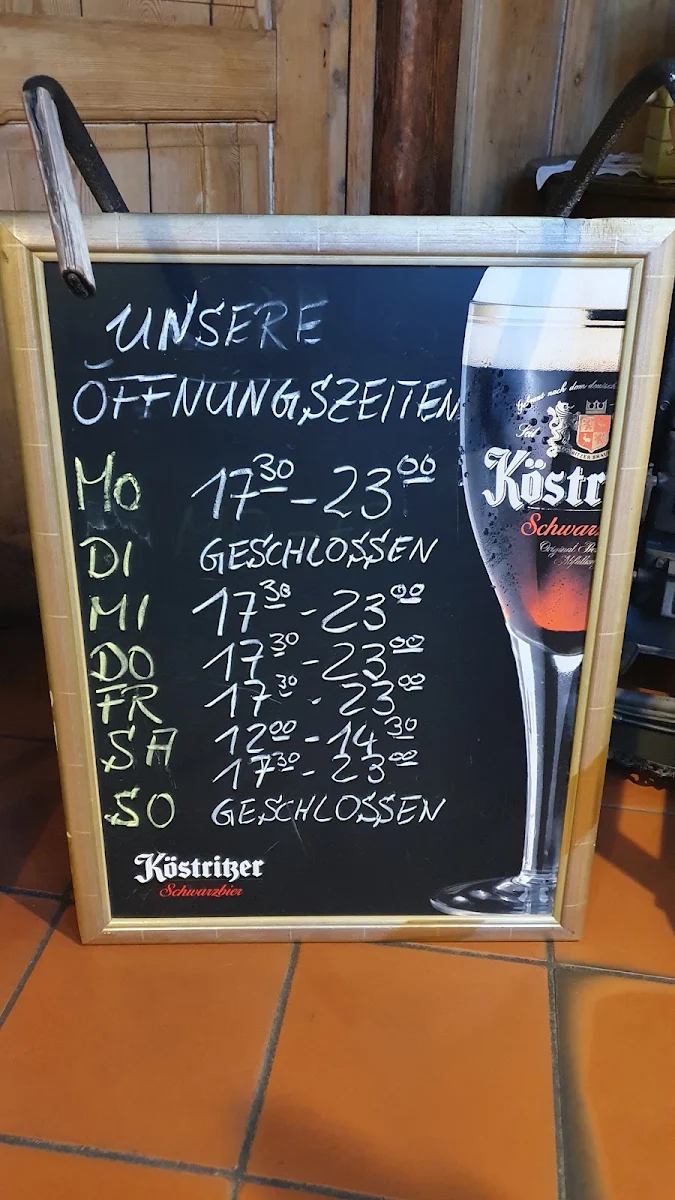 UNSERE
ÖFFNUNGSZEITEN
MO 17 30 - 23 00
DI GESCHLOSSEN
MI 17 30 - 23 00
DO 17 30 - 23 00
FR 17 30 - 23 00
SA 12 00 - 14 30
17 30 - 23 00
SO GESCHLOSSEN
Köstritzer
Schwarzbier
Gebraut nach dem deutsch
Seit
Köstr
Schwarz
Original